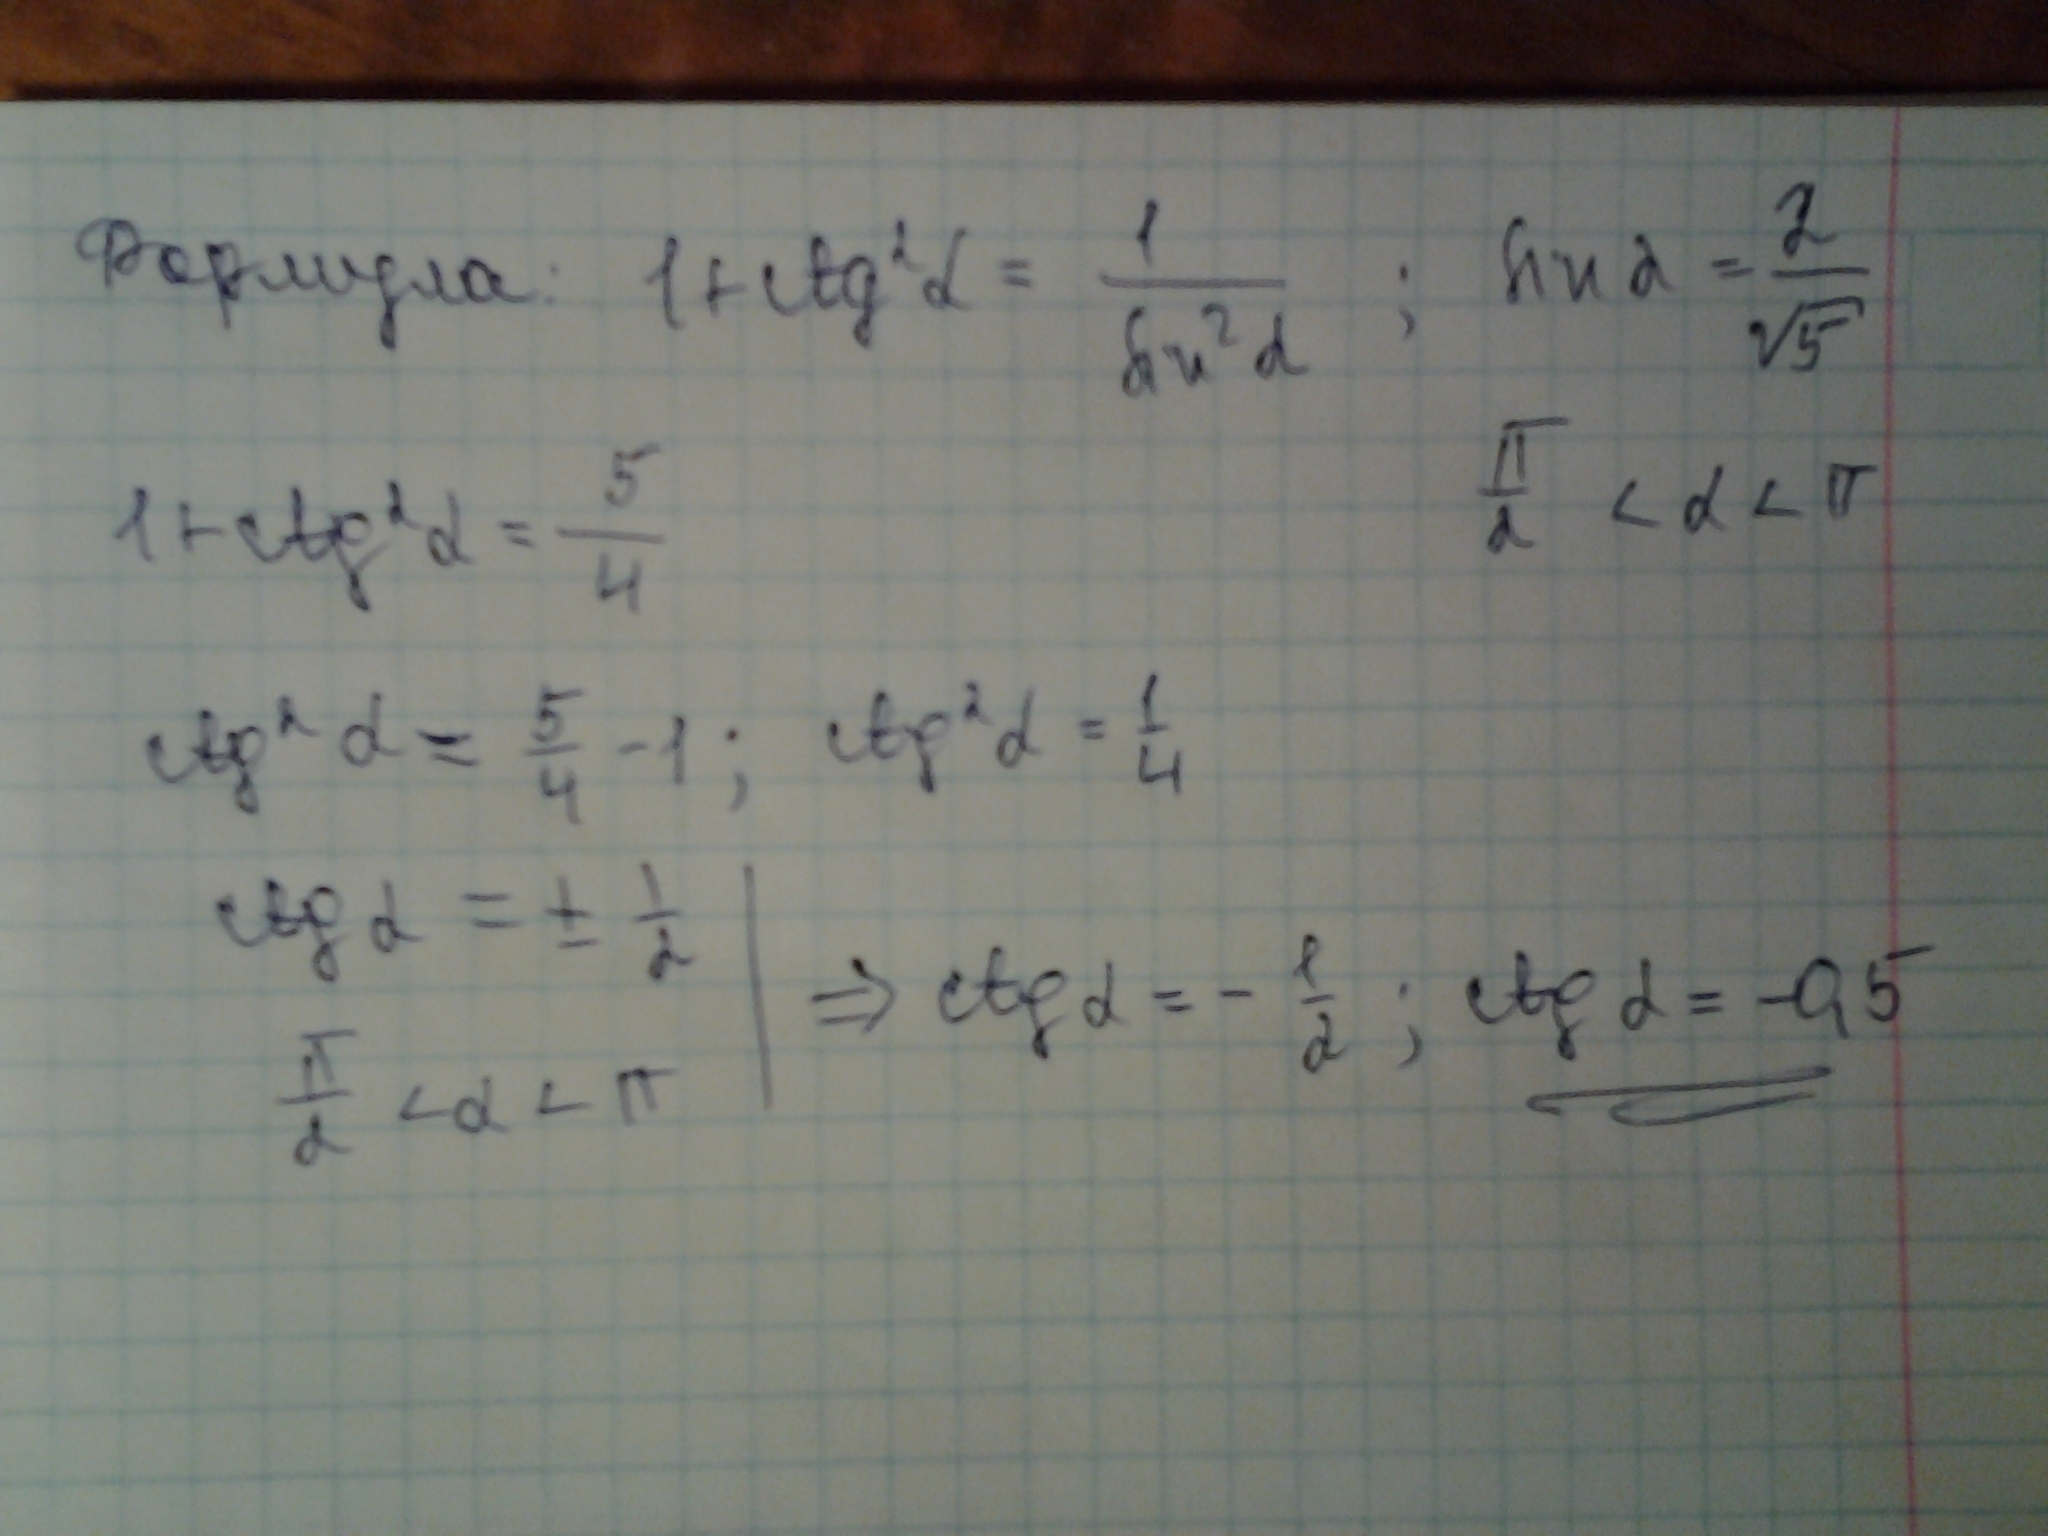 Формула: 1+ctg²α = 1/sin²α ; sin α = 2/√5
π/2 < α < π
1+ctg²α = 5/4
ctg²α = 5/4 -1; ctg²α = 1/4
ctg α = ± 1/2
π/2 < α < π
⇒ ctg α = - 1/2 ; ctg α = -0,5